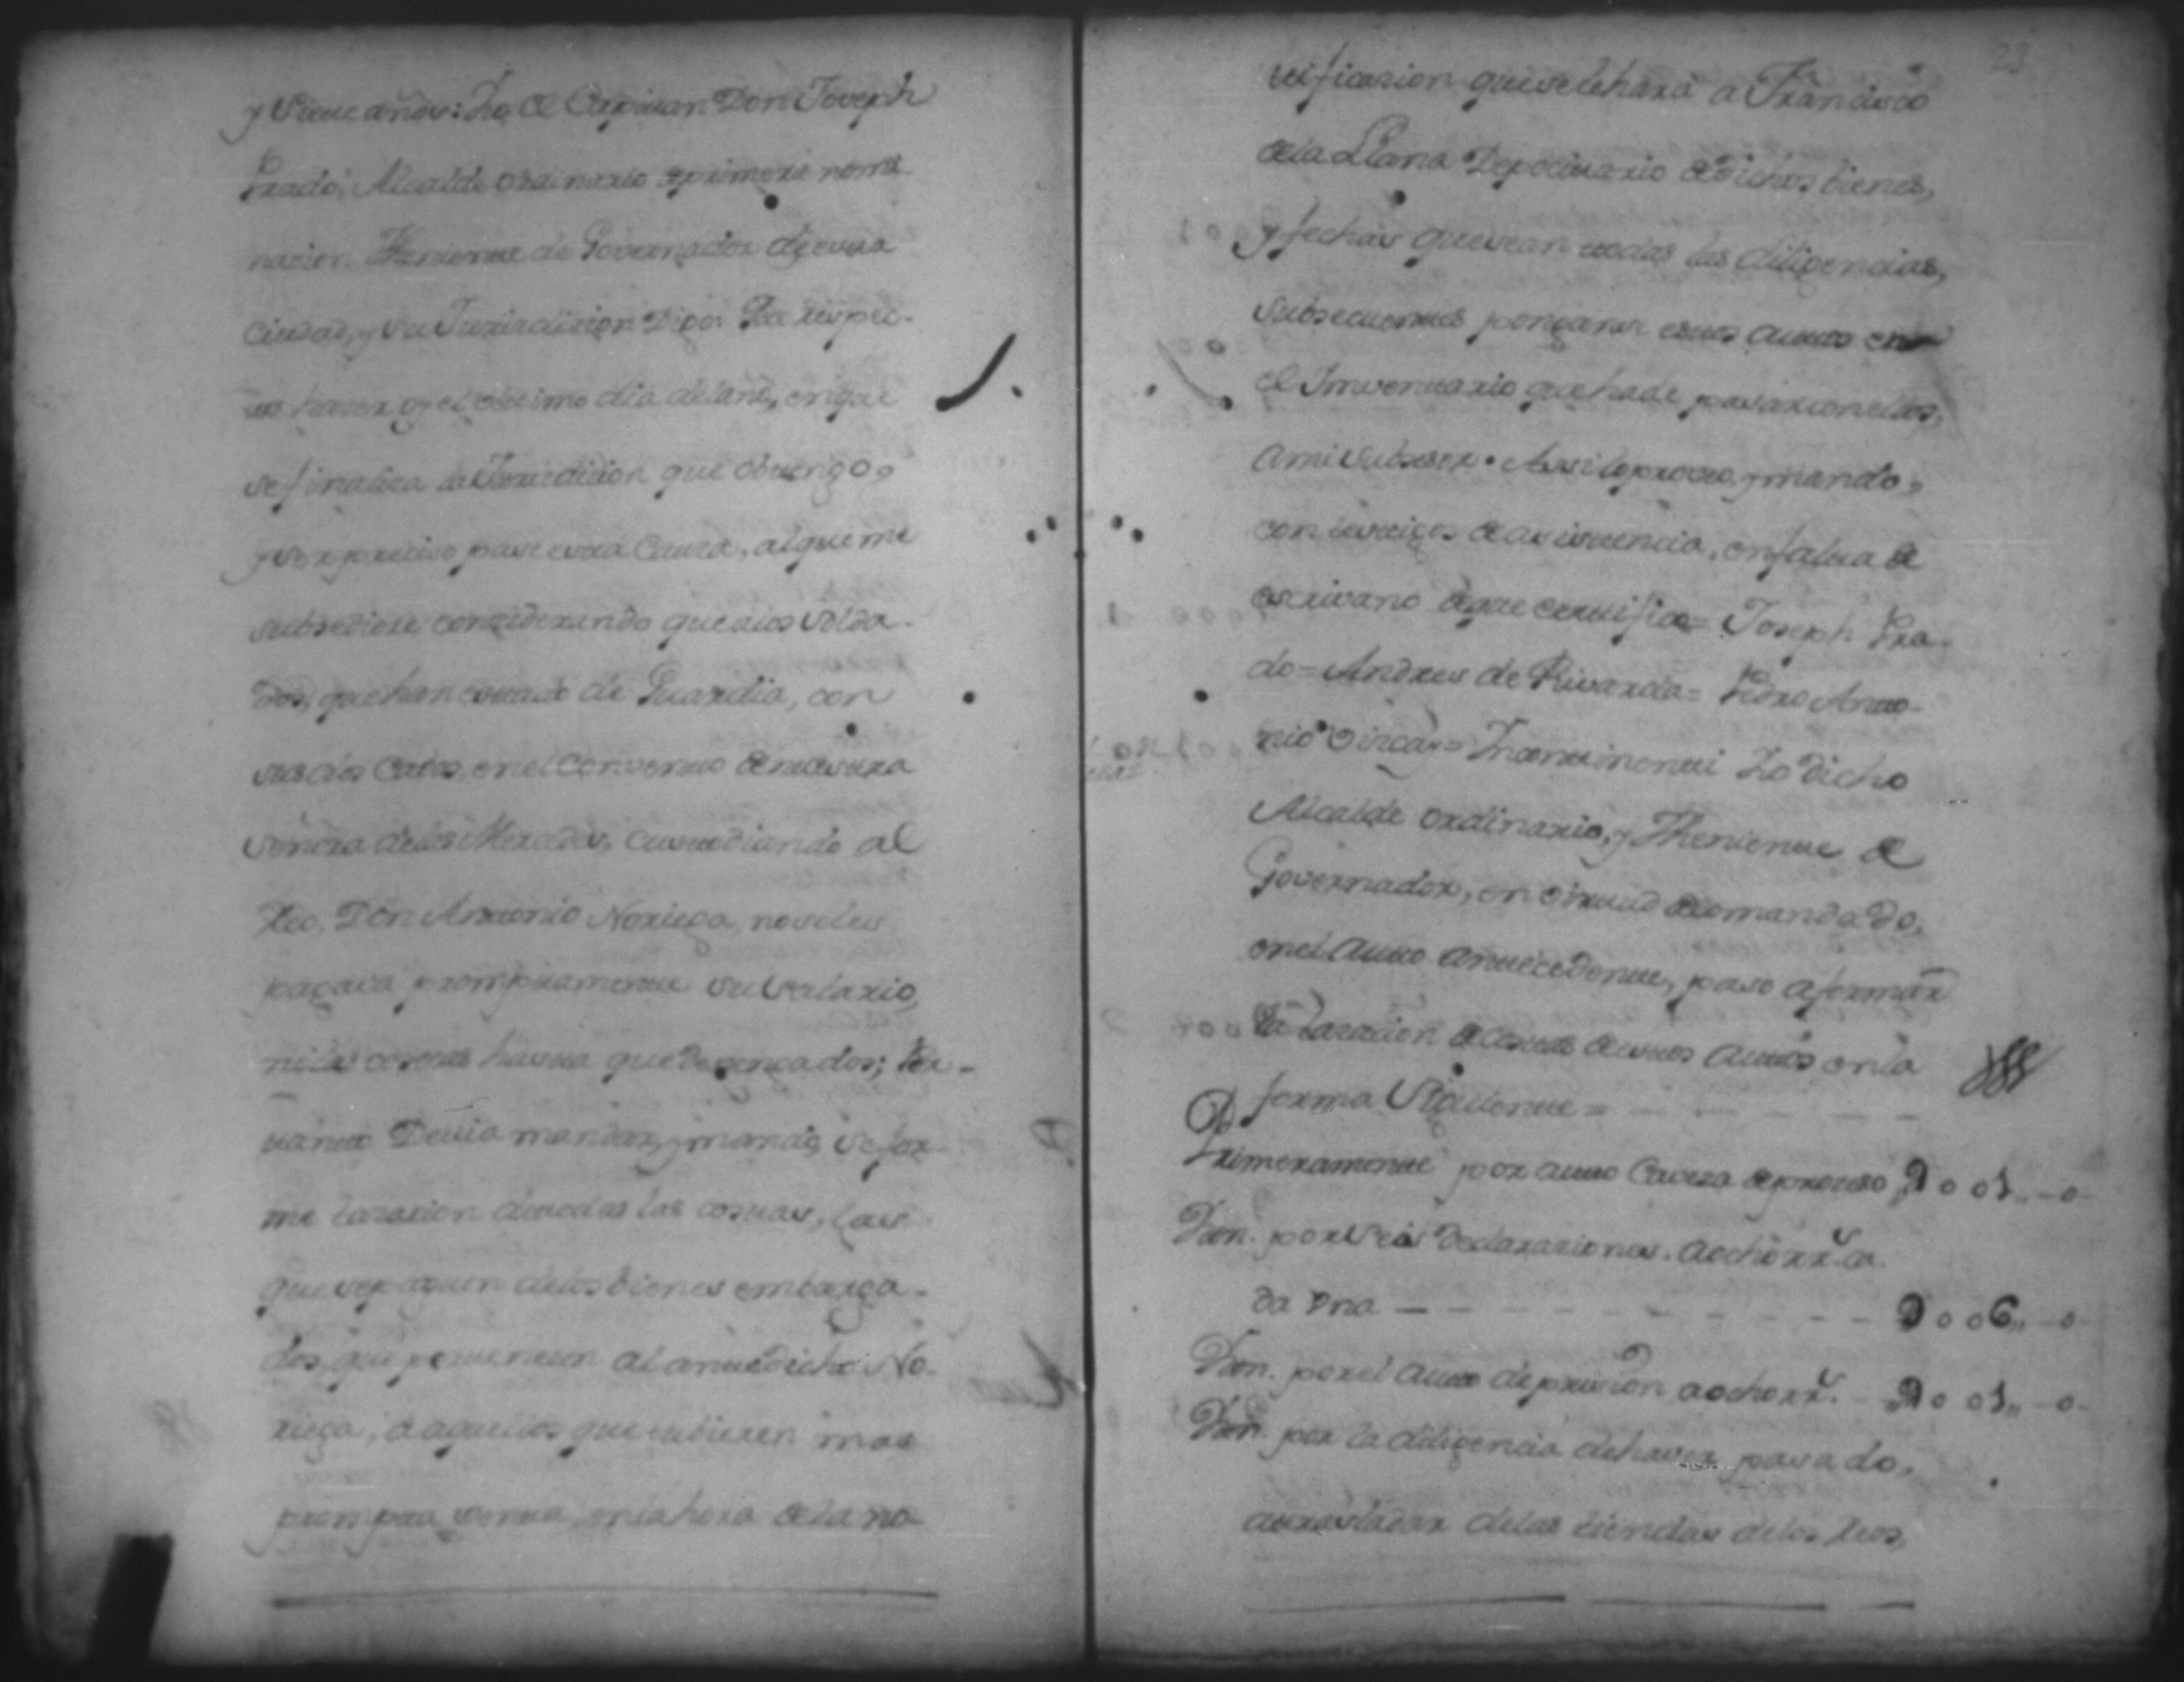 y Siete años: Yo el Capitan Don Joseph
Prado, Alcalde ordinario de primera nomi-
nacion Theniente de Governador de esta
Ciudad, y su Jurisdicion Digo: Qe respec-
to haser oy el ultimo dia del año, en que
se finaliza la Jurisdicion que obtengo,
y ser preciso pase esta Causa, al que me
subsediere considerando que a los Solda-
dos, que han estado de Guardia, con
sus dos Cabos, en el Convento de nuestra
Señora de las Mercedes, custodiando al
Reo, Don Antonio Noriega, no se les
pagava promptamente su salario,
ni las costas hasta que devengados; Por
tanto Devia mandar, y mando, se for-
me tasasion de todas las costas, las
que se paguen de los bienes embarga-
dos, que pertenecen al antedicho No-
riega, de aquellos que tubieren mas
prompta venta, en la hora de la no-
23
tificasion que se le hará a Francisco
de la Llana Depocitario de Dichos bienes,
y fechas que sean todas las diligencias,
Subsecuentes ponganse estos autos en
el Imventario que hade pasar con ellos,
a mi subsesor. Assi lo proveo, y mando,
con testigos de asistencia, en falta de
escrivano de que certifico= Joseph Pra-
do= Andres de Rivarola= Pedro Anto-
nio Oircay= Incontinenti Yo dicho
Alcalde ordinario, y Theniente de
Governador, en virtud de lo mandado,
en el auto antecedente, paso a formar
la tasacion de costas de estos autos en la
forma Siguiente=
Primeramente por auto Caveza de proceso, 001,,-0-
Ytten. por seis Declarasiones. a ocho rrs. ca-
da una - 006,,-0-
Ytten. por el auto de prision a ocho rrs. - 001,,-0-
Ytten. por la diligencia de haver pasado,
a trasladar de las tiendas de los Reos,